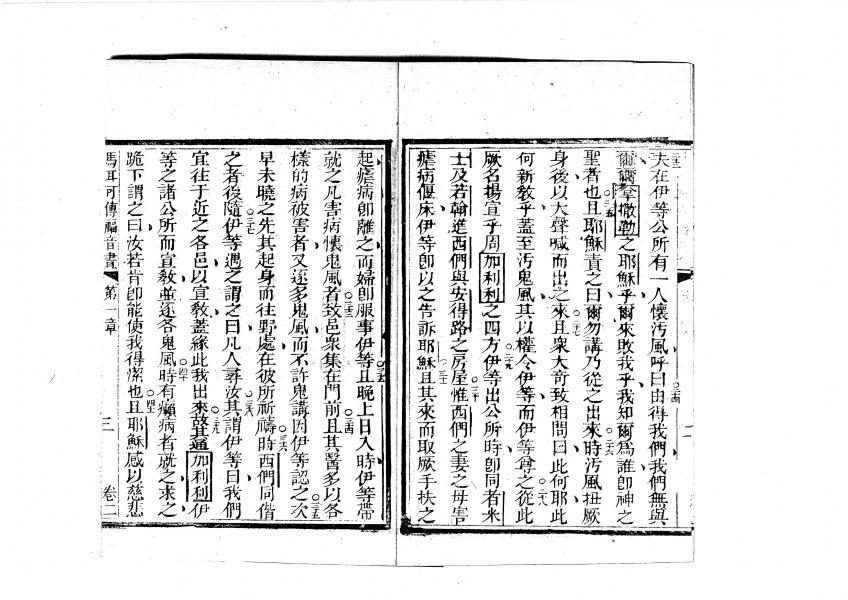 夫在伊等公所有一人懷汚風呼曰由得我們我們無與
爾爾拿撒勒之耶穌乎爾來敗我乎我知爾爲誰卽神之
聖者也且耶穌責之曰爾勿講乃從之出來時汚風扭厥
身後以大聲喊而出之來且衆大奇致相問曰此何耶此
何新敎乎蓋至汚鬼風其以權令伊等而伊等尊之從此
厥名揚宣乎周加利利之四方伊等出公所時卽同者米
士及若翰進西們與安得路之房屋惟西們之妻之母害
瘧病偃床伊等卽以之告訴耶穌且其來而取厥手扶之
起瘧病卽離之而婦卽服事伊等且晚上日入時伊等帶
就之凡害病懷鬼風者致邑衆集在門前且其醫多以各
樣的病被害者又逐多鬼風而不許鬼講因伊等認之次
早未曉之先其起身而往野處在彼所祈禱時西們同偕
之者後隨伊等遇之謂之曰凡人尋汝其謂伊等曰我們
宜往于近之各邑以宣敎蓋緣此我出來故其通加利利伊
等之諸公所而宣敎並逐各鬼風時有癩病者就之求之
跪下謂之曰汝若肯卽能使我得潔也且耶穌感以慈悲
馬耳可傳福音書 第一章 三 卷二